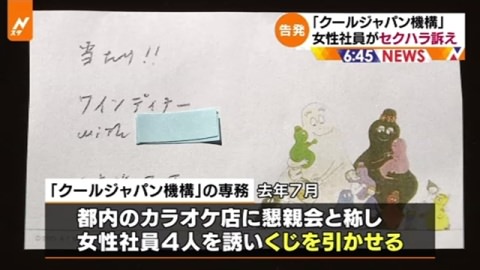 Nスタ
告発
「クールジャパン機構」
女性社員がセクハラ訴え
6:45 NEWS
当たり!!
ワインディナー
with
「クールジャパン機構」の専務 去年7月
都内のカラオケ店に懇親会と称し
女性社員4人を誘いくじを引かせる